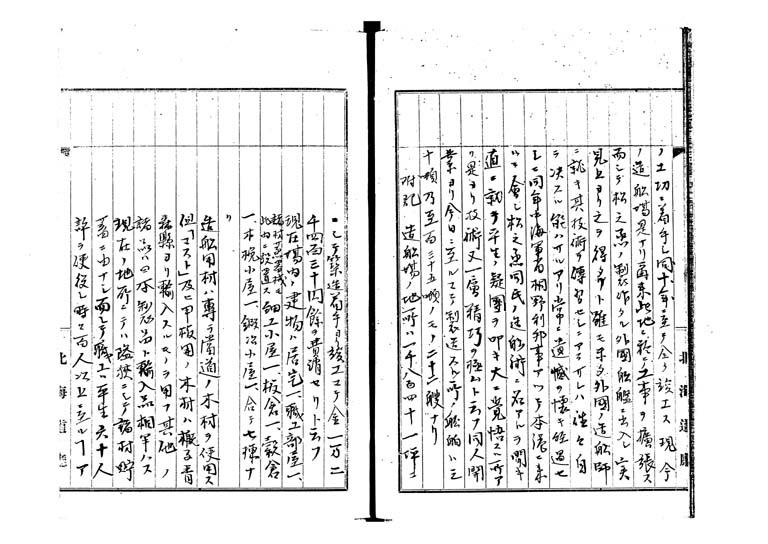 ノ土功ニ着手シ同十年ニ至テ全ク竣工ス現今
ノ造船場是ナリ再来此地ニ於テ工事ヲ擴張ス
而シテ松之丞ノ制作タル外國船艦ニ出入シ実
見上ヨリ之ヲ得タリト雖モ未タ外國ノ造船師
ニ就キ其技術ヲ傳習セシニアラサレハ往々自
ラ決スル能ハサルアリ常ニ遺憾ヲ懐キ経過セ
シニ同年中海軍省桐野利邦事アツテ本港ニ来
ルニ會シ松之丞同氏ノ造船術ニ名アルヲ聞キ
直ニ就テ平生ノ疑團ヲ叩キ大ニ覚悟スル所ア
リ是ヨリ技術又一層精巧ヲ極ムト云フ同人開
業ヨリ今日ニ至ルマテ製造スル所ノ船舶ハ三
十噸乃至百三十五噸ノモノ二十二艘ナリ
附記 造船場ノ地所ハ一千八百四十一坪ニ
北海道廳
ニシテ築造着手ヨリ竣工マテ金一万二
千四百三十円餘ヲ費消セリト云フ
現在場内ノ建物ハ居宅一、職工部屋一、
諸材蒸器械モ此内ニ設置ス 細工小屋一、板倉一、穀倉
一、木挽小屋一、鍛冶小屋一、合テ七棟ナ
リ
造船用材ハ専ラ當道ノ木材ヲ使用ス
但「マスト」及ヒ甲板用ノ木材ハ概子青
森縣ヨリ輸入スルモノヲ用フ其他ノ
諸品ハ日本製品ト輸入品相半ハス
現在ノ地所ニテハ隘狭ニシテ諸材貯
蓄ニ由ナシ而シテ職工ハ平生六十人
許ヲ使役シ時トテ百人以上ニ至ルコア
北海道廳